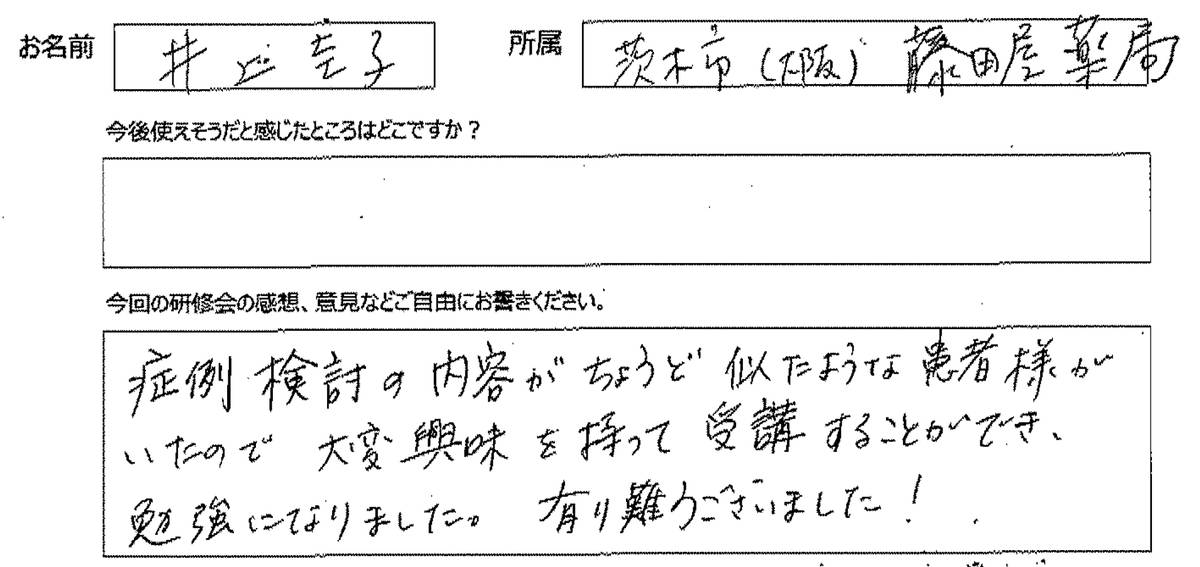 お名前 井辻圭子 所属 茨木市(大阪) 藤田屋薬局
今後使えそうだと感じたところはどこですか?
今回の研修会の感想、意見などご自由にお書きください。
症例検討の内容がちょうど似たような患者様が
いたので 大変興味を持って受講することができ、
勉強になりました。 有り難うございました!